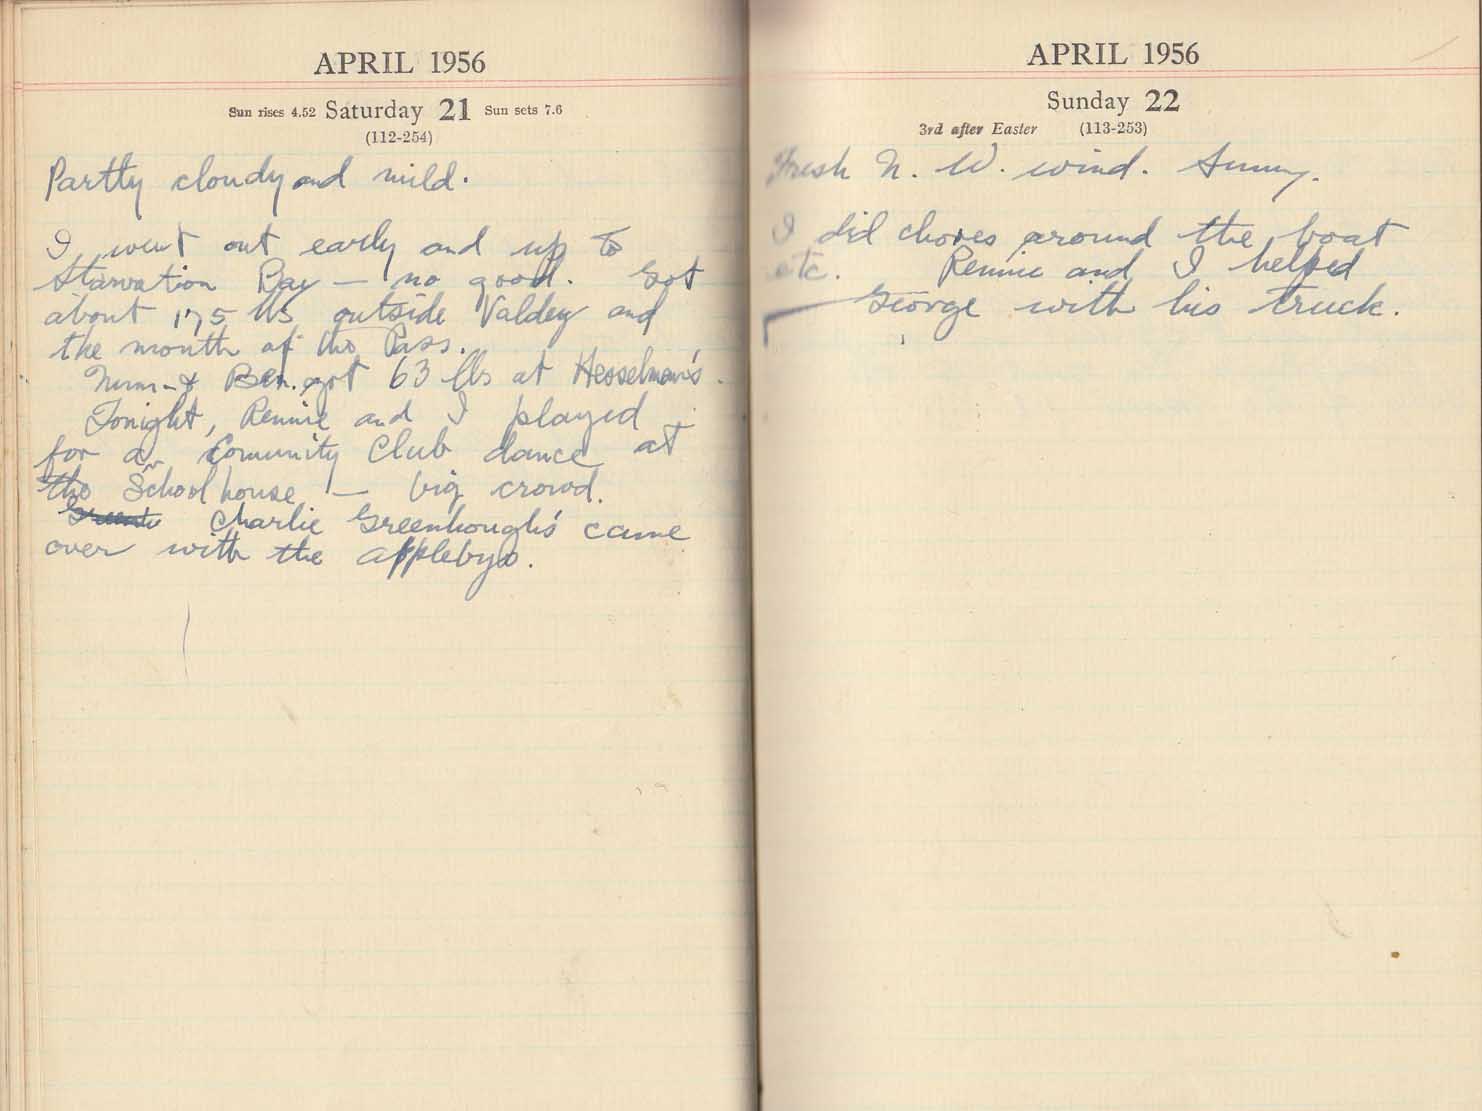 APRIL 1956
Sun rises 4.52 Saturday 21 Sun sets 7.6
(112-254)
Partly cloudy and mild.
I went out early and up to
Starvation Bay — no good. Got
about 175 lbs outside Valdey and
the mouth of the Pass.
& Ben. got 63 lbs at Hesselman's.
Tonight, Rennie and I played
for a Comunity Club dance at
the School house — big crowd.
Charlie Greenhough's came
over with the Applebys.
APRIL 1956
Sunday 22
3rd after Easter (113-253)
Fresh N. W. wind. Sunny.
I did chores around the boat
etc. Rennie and I helped
George with his truck.